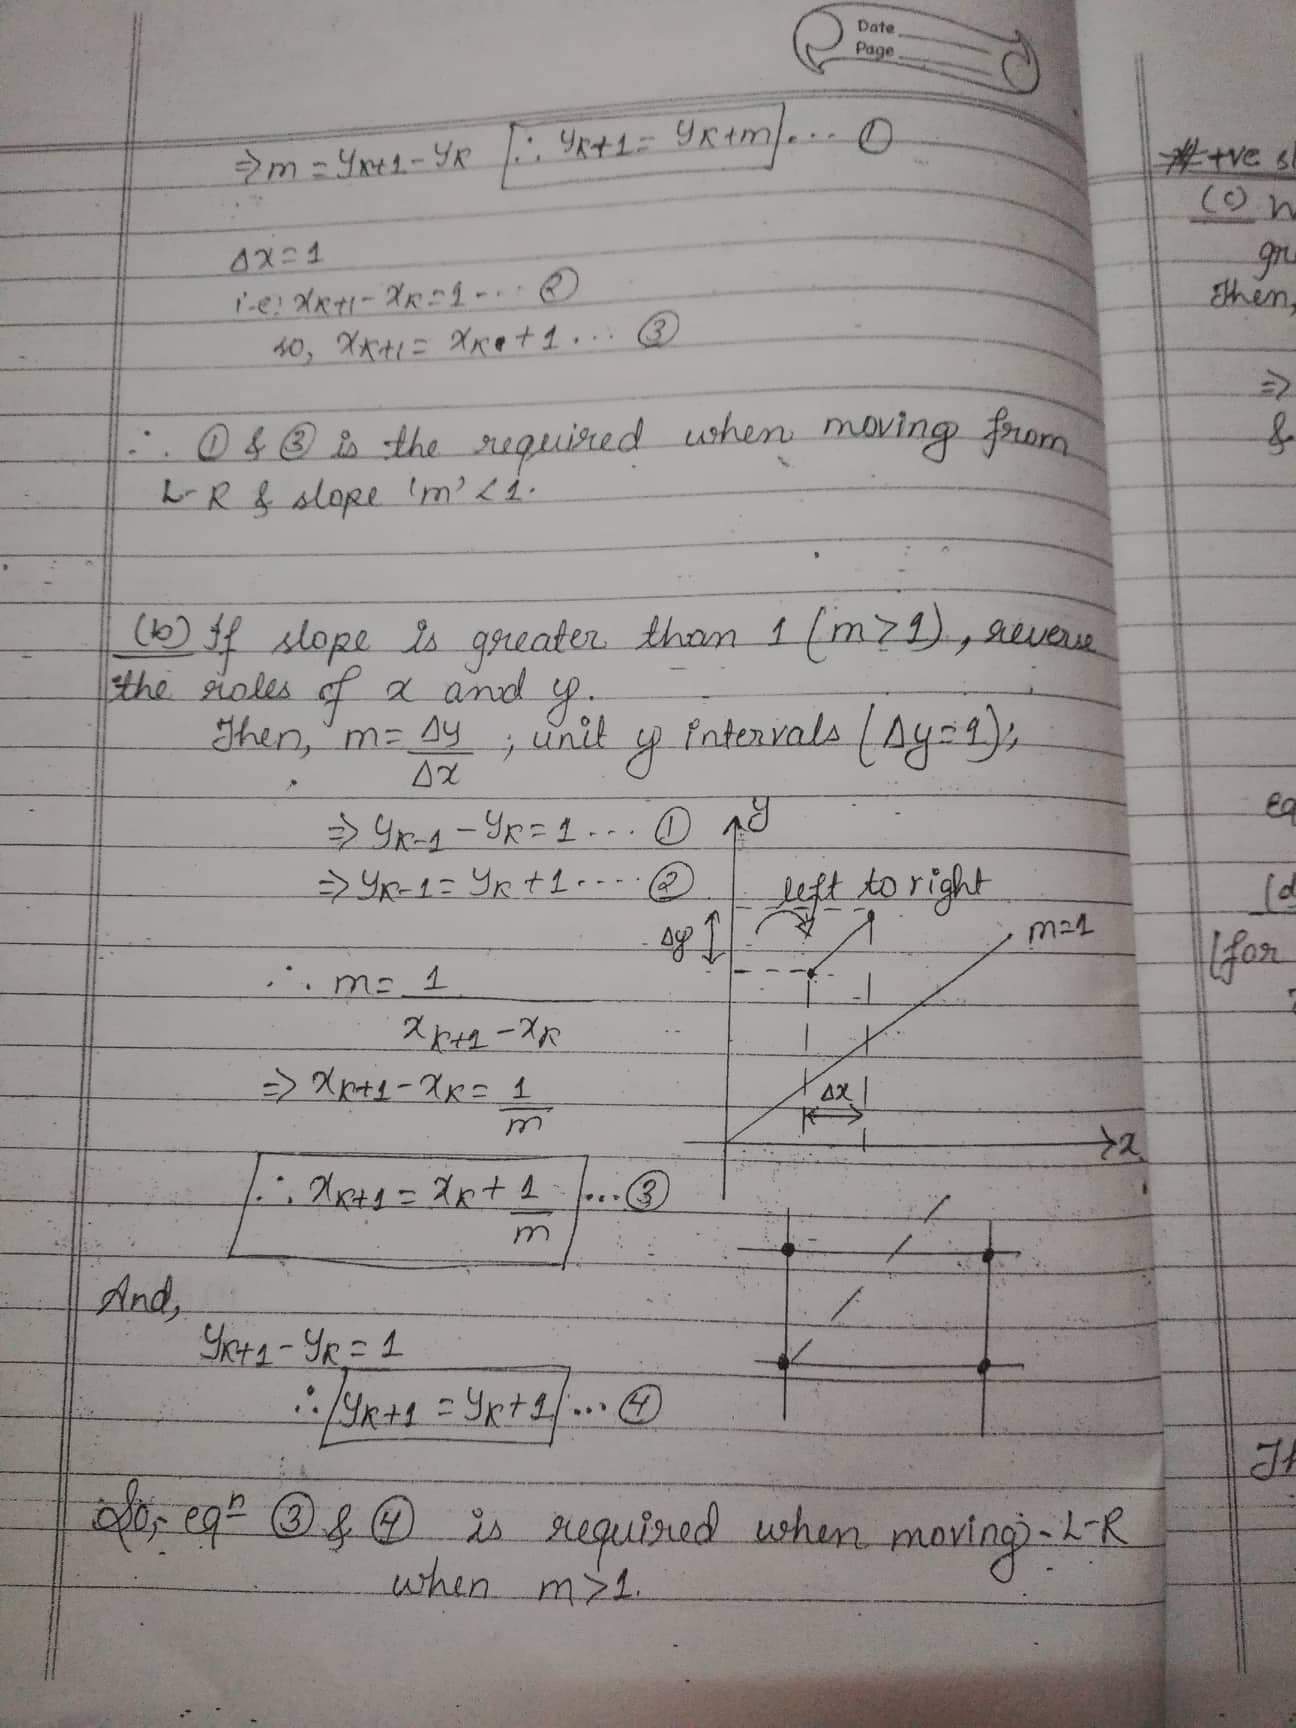 Date
Page
⇒ m = yK+1 - yK ∴ yK+1 = yK+m ... ①
Δx = 1
i.e: xK+1 - xK = 1 ... ②
so, xK+1 = xK + 1 ... ③
∴ ① & ③ is the required when moving from
L-R & slope 'm' < 1.
(b) If slope is greater than 1 (m>1), reverse
the roles of x and y.
Then, m = Δy/Δx ; unit y intervals (Δy=1);
⇒ yK-1 - yK = 1 ... ①
⇒ yK-1 = yK + 1 .... ②
∴ m = 1/(xK+1 - xK)
⇒ xK+1 - xK = 1/m
∴ xK+1 = xK + 1/m ... ③
And,
yK+1 - yK = 1
∴ yK+1 = yK+1 ... ④
So, eqn ③ & ④ is required when moving - L-R
when m>1.
y
left to right
Δy
m=1
Δx
x
+ve sl
(c)
gr
Then,
⇒
&
eq
(d
(for
Th